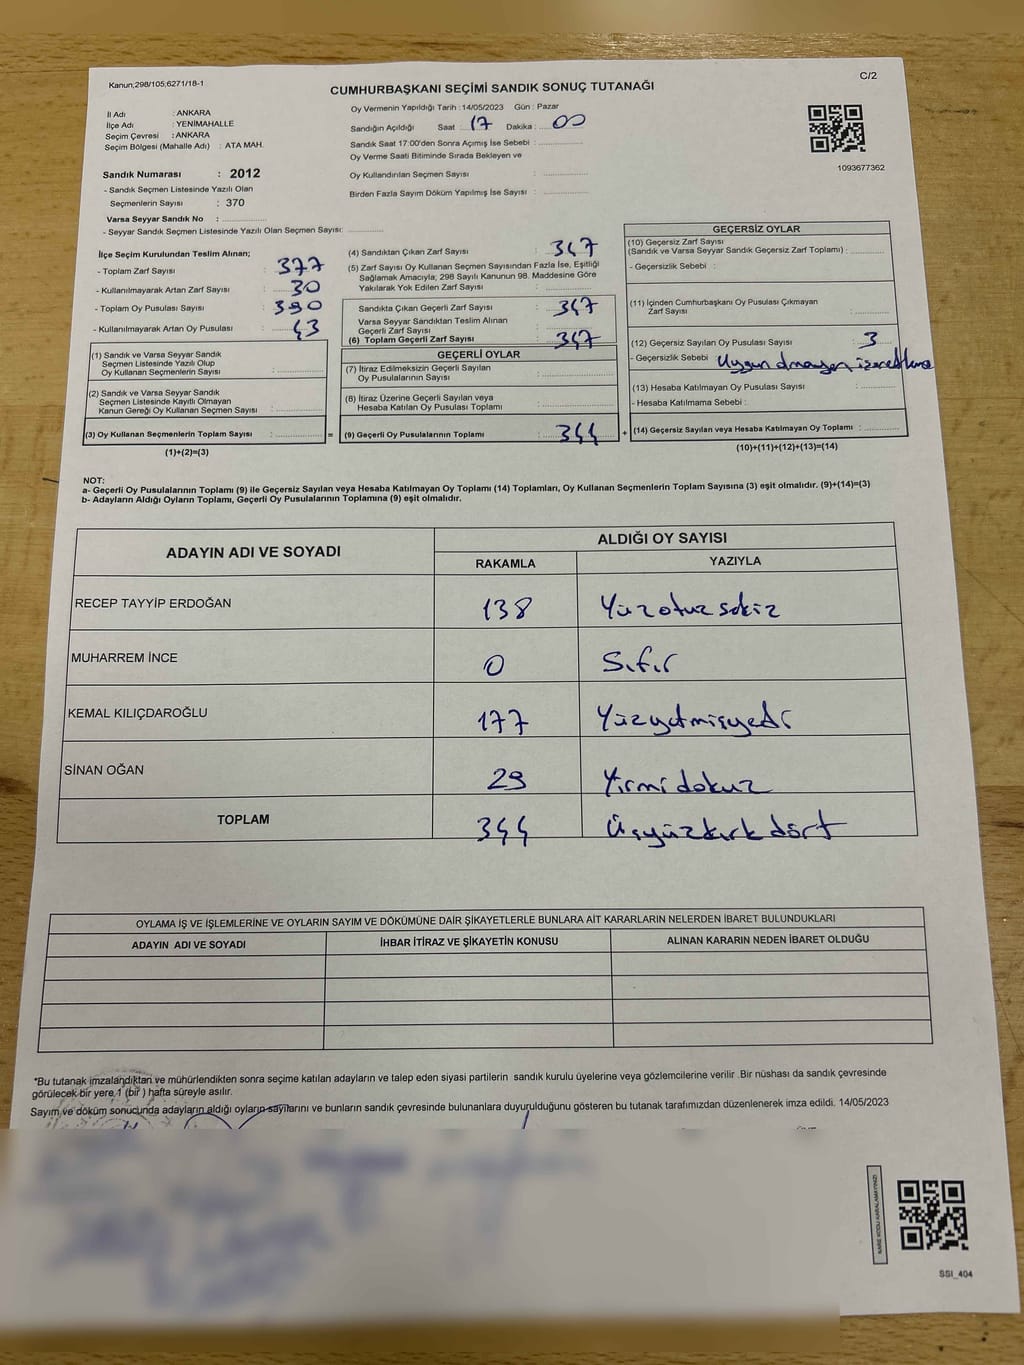 Kanun;298/105;6271/18-1
C/2
CUMHURBAŞKANI SEÇİMİ SANDIK SONUÇ TUTANAĞI
İl Adı : ANKARA
İlçe Adı : YENİMAHALLE
Seçim Çevresi : ANKARA
Seçim Bölgesi (Mahalle Adı) : ATA MAH.
Sandık Numarası : 2012
- Sandık Seçmen Listesinde Yazılı Olan
Seçmenlerin Sayısı : 370
Varsa Seyyar Sandık No :
- Seyyar Sandık Seçmen Listesinde Yazılı Olan Seçmen Sayısı:
Oy Vermenin Yapıldığı Tarih : 14/05/2023 Gün : Pazar
Sandığın Açıldığı Saat : 17 Dakika : 00
Sandık Saat 17:00'den Sonra Açımış İse Sebebi :
Oy Verme Saati Bitiminde Sırada Bekleyen ve
Oy Kullandırılan Seçmen Sayısı :
Birden Fazla Sayım Döküm Yapılmış İse Sayısı :
1093677362
İlçe Seçim Kurulundan Teslim Alınan;
- Toplam Zarf Sayısı : 377
- Kullanılmayarak Artan Zarf Sayısı : 30
- Toplam Oy Pusulası Sayısı : 390
- Kullanılmayarak Artan Oy Pusulası : 43
(1) Sandık ve Varsa Seyyar Sandık
Seçmen Listesinde Yazılı Olup
Oy Kullanan Seçmenlerin Sayısı :
(2) Sandık ve Varsa Seyyar Sandık
Seçmen Listesinde Kayıtlı Olmayan
Kanun Gereği Oy Kullanan Seçmen Sayısı :
(3) Oy Kullanan Seçmenlerin Toplam Sayısı :
=
(1)+(2)=(3)
(4) Sandıktan Çıkan Zarf Sayısı : 347
(5) Zarf Sayısı Oy Kullanan Seçmen Sayısından Fazla İse, Eşitliği
Sağlamak Amacıyla; 298 Sayılı Kanunun 98. Maddesine Göre
Yakılarak Yok Edilen Zarf Sayısı :
Sandıkta Çıkan Geçerli Zarf Sayısı : 347
Varsa Seyyar Sandıktan Teslim Alınan
Geçerli Zarf Sayısı :
(6) Toplam Geçerli Zarf Sayısı : 347
GEÇERLİ OYLAR
(7) İtiraz Edilmeksizin Geçerli Sayılan
Oy Pusulalarının Sayısı :
(8) İtiraz Üzerine Geçerli Sayılan veya
Hesaba Katılan Oy Pusulası Toplamı :
(9) Geçerli Oy Pusulalarının Toplamı : 344
+
GEÇERSİZ OYLAR
(10) Geçersiz Zarf Sayısı
(Sandık ve Varsa Seyyar Sandık Geçersiz Zarf Toplamı) :
- Geçersizlik Sebebi :
(11) İçinden Cumhurbaşkanı Oy Pusulası Çıkmayan
Zarf Sayısı :
(12) Geçersiz Sayılan Oy Pusulası Sayısı : 3
- Geçersizlik Sebebi Uygun olmayan
(13) Hesaba Katılmayan Oy Pusulası Sayısı :
- Hesaba Katılmama Sebebi :
(14) Geçersiz Sayılan veya Hesaba Katılmayan Oy Toplamı :
(10)+(11)+(12)+(13)=(14)
NOT:
a- Geçerli Oy Pusulalarının Toplamı (9) ile Geçersiz Sayılan veya Hesaba Katılmayan Oy Toplamı (14) Toplamları, Oy Kullanan Seçmenlerin Toplam Sayısına (3) eşit olmalıdır. (9)+(14)=(3)
b- Adayların Aldığı Oyların Toplamı, Geçerli Oy Pusulalarının Toplamına (9) eşit olmalıdır.
ADAYIN ADI VE SOYADI ALDIĞI OY SAYISI
RAKAMLA YAZIYLA
RECEP TAYYİP ERDOĞAN 138 Yüzotuzsekiz
MUHARREM İNCE 0 Sıfır
KEMAL KILIÇDAROĞLU 177 Yüzyetmişyedi
SİNAN OĞAN 29 Yirmidokuz
TOPLAM 344 Üçyüzkırkdört
OYLAMA İŞ VE İŞLEMLERİNE VE OYLARIN SAYIM VE DÖKÜMÜNE DAİR ŞİKAYETLERLE BUNLARA AİT KARARLARIN NELERDEN İBARET BULUNDUKLARI
ADAYIN ADI VE SOYADI İHBAR İTİRAZ VE ŞİKAYETİN KONUSU ALINAN KARARIN NEDEN İBARET OLDUĞU
*Bu tutanak imzalandıktan ve mühürlendikten sonra seçime katılan adayların ve talep eden siyasi partilerin sandık kurulu üyelerine veya gözlemcilerine verilir .Bir nüshası da sandık çevresinde
görülecek bir yere 1 (bir ) hafta süreyle asılır.
Sayım ve döküm sonucunda adayların aldığı oyların sayılarını ve bunların sandık çevresinde bulunanlara duyurulduğunu gösteren bu tutanak tarafımızdan düzenlenerek imza edildi. 14/05/2023
KARE KODU KARALAMAYINIZ!
SSI_404